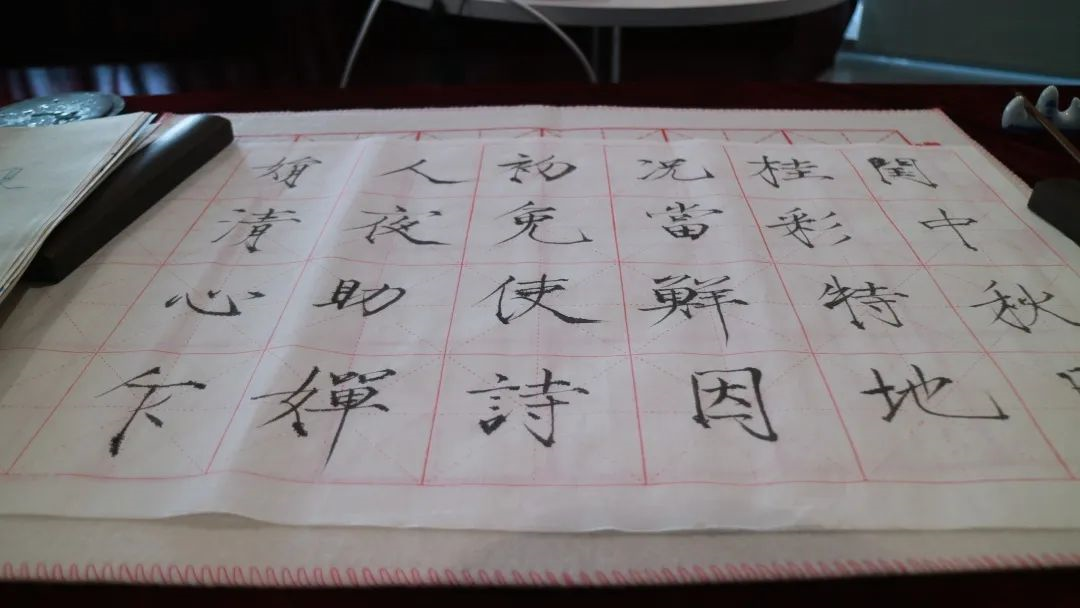 閏中秋
桂彩特地
況當鮮因
初免使詩
人夜助嬋
娟清心